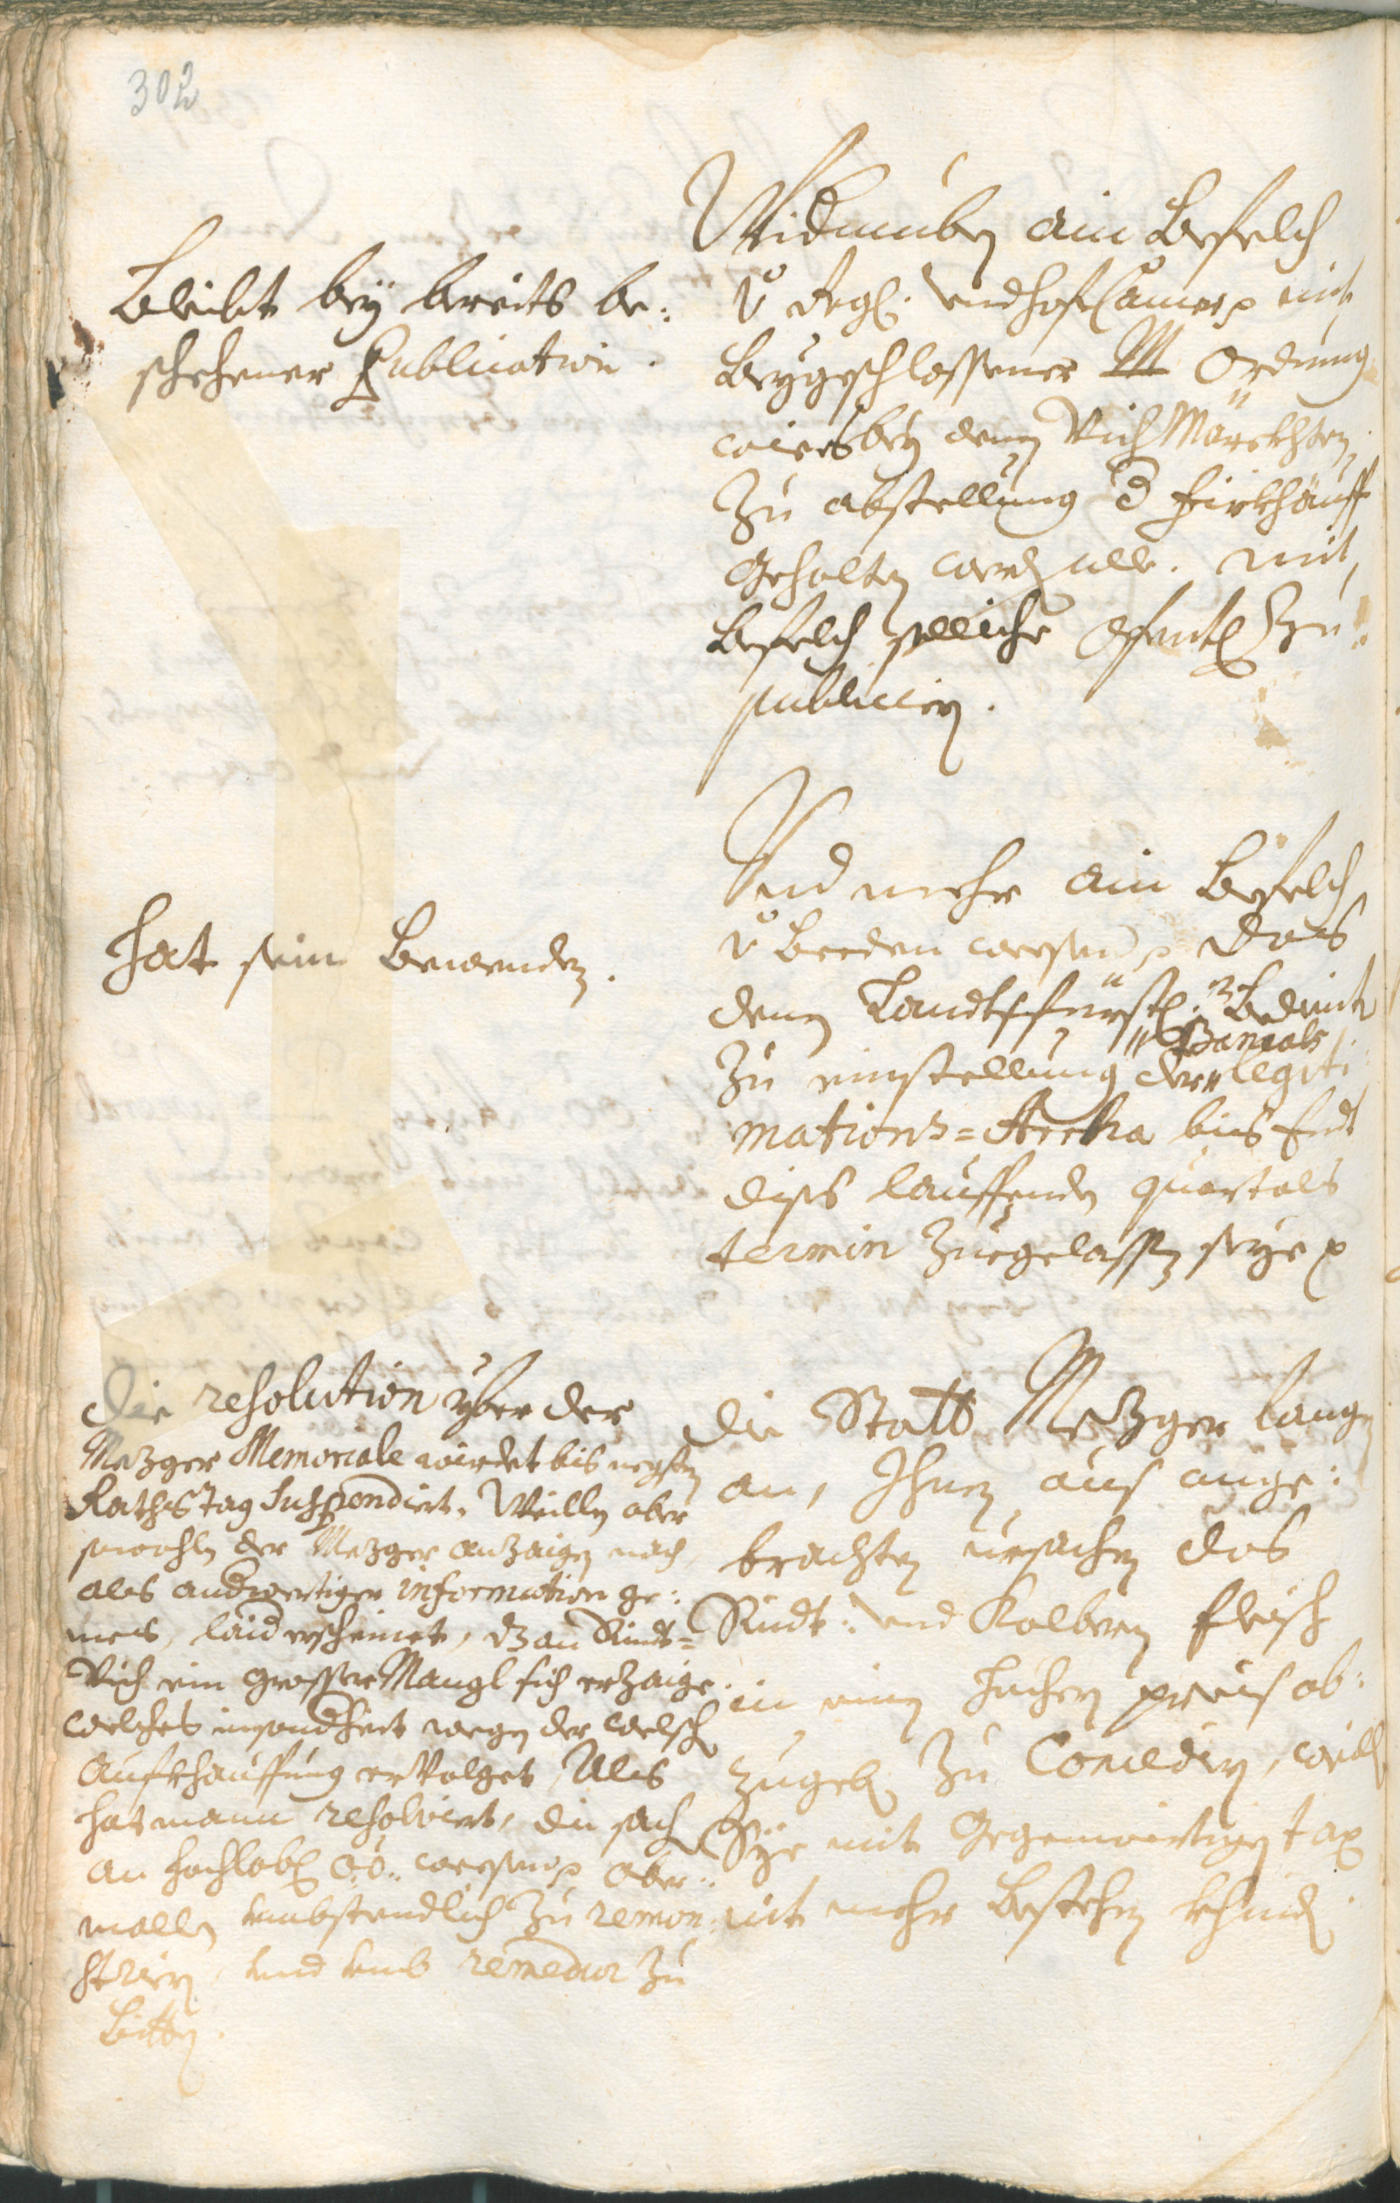 302
Bleibt bey bereits be:
schehener Publication.
Widerumben ain Befelch
v Regl: vnd hof Camer p mit
beygeschlossener Ordnung
wie es bey denen Vich Märckhten
Zu abstellung d firkhäuff
gehalten werden solle. mit
befelch solliche offentl Zu:
publiciern.
hat sein Bewenden.
Und mehr ain Befelch
v beeden wesen p das
denen Landtsfürstl: Bedient
Zu einstellung der " Bancals
legiti
mations=Steckha bis Endt
diss lauffenden quartals
termin Zuegelassen seye p
Die resolution yber der
Mezger Memoriale wirdet bis negsten
Raths tag Suspendirt. Weillen aber
sowohlen der Mezger anzaigen nach
als anderwertiger information ge:
mess, laider scheinet, dz an Rindt=
Vich ein grosser Mangl sich erzaige
welches insonderheit wegen der welsch
Aufkhauffung ervolget, Als
hat mann resolviert, die sach
an hochlobl OÖ: wesen p aber:
mallen umbstendlich Zu remon
striern, und umb remedur Zu
bitten.
Die Statt Mezger langen
an, Ihnen aus ange:
brachten ursachen das
Rindt: und Kalbern fleisch
in einen hechern preis ab:
zugeben Zu Concediern, weill
Sye mit gegenwertigen tax
nit mehr bestehen khinden.